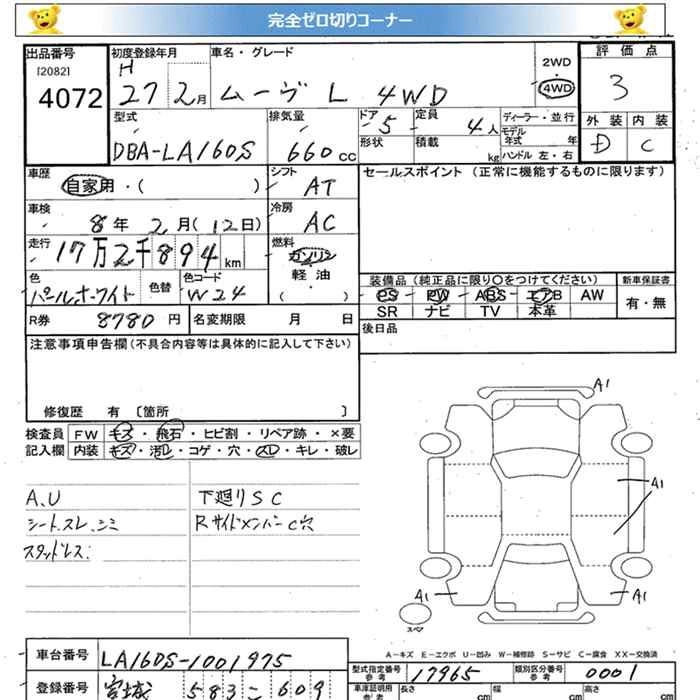 完全ゼロ切りコーナー
出品番号 初度登録年月 車名・グレード 評価点
[2082]
4072
H
27 2月 ムーヴ L 4WD
2WD
4WD
3
型式 排気量 ドア 定員 ディーラー・並行 外装 内装
DBA-LA160S 660cc 5 4人
モデル年式 年
形状 積載 kg ハンドル 左・右
D C
車歴 シフト セールスポイント (正常に機能するものに限ります)
自家用・( ) AT
車検 冷房
8年 2月(12日) AC
走行 燃料
17万2千894km ガソリン
軽油
( )
色 色替 色コード 装備品 (純正品に限り〇をつけてください) 新車保証書
パールホワイト W24
PS PW ABS エアB AW 有・無
SR ナビ TV 本革
R券 8780円 名変期限 月 日
後日品
注意事項申告欄(不具合内容等は具体的に記入して下さい)
修復歴 有 〔箇所 〕
検査員 FW キズ・飛石・ヒビ割・リペア跡・×要
記入欄 内装 キズ・汚れ・コゲ・穴・スレ・キレ・破レ
A1
A.U 下廻りSC
シートスレ.シミ RサイドメンバーC穴
スタッドレス:
A1
A1 A1
スペア
A-キズ E-エクボ U-凹み W-補修跡 S-サビ C-腐食 XX-交換済
車台番号 LA160S-1001975
型式指定番号 参考 17965 類別区分番号 参考 0001
登録番号 宮城 583 こ 609
車庫証明用 参考 長さ cm 幅 cm 高さ cm